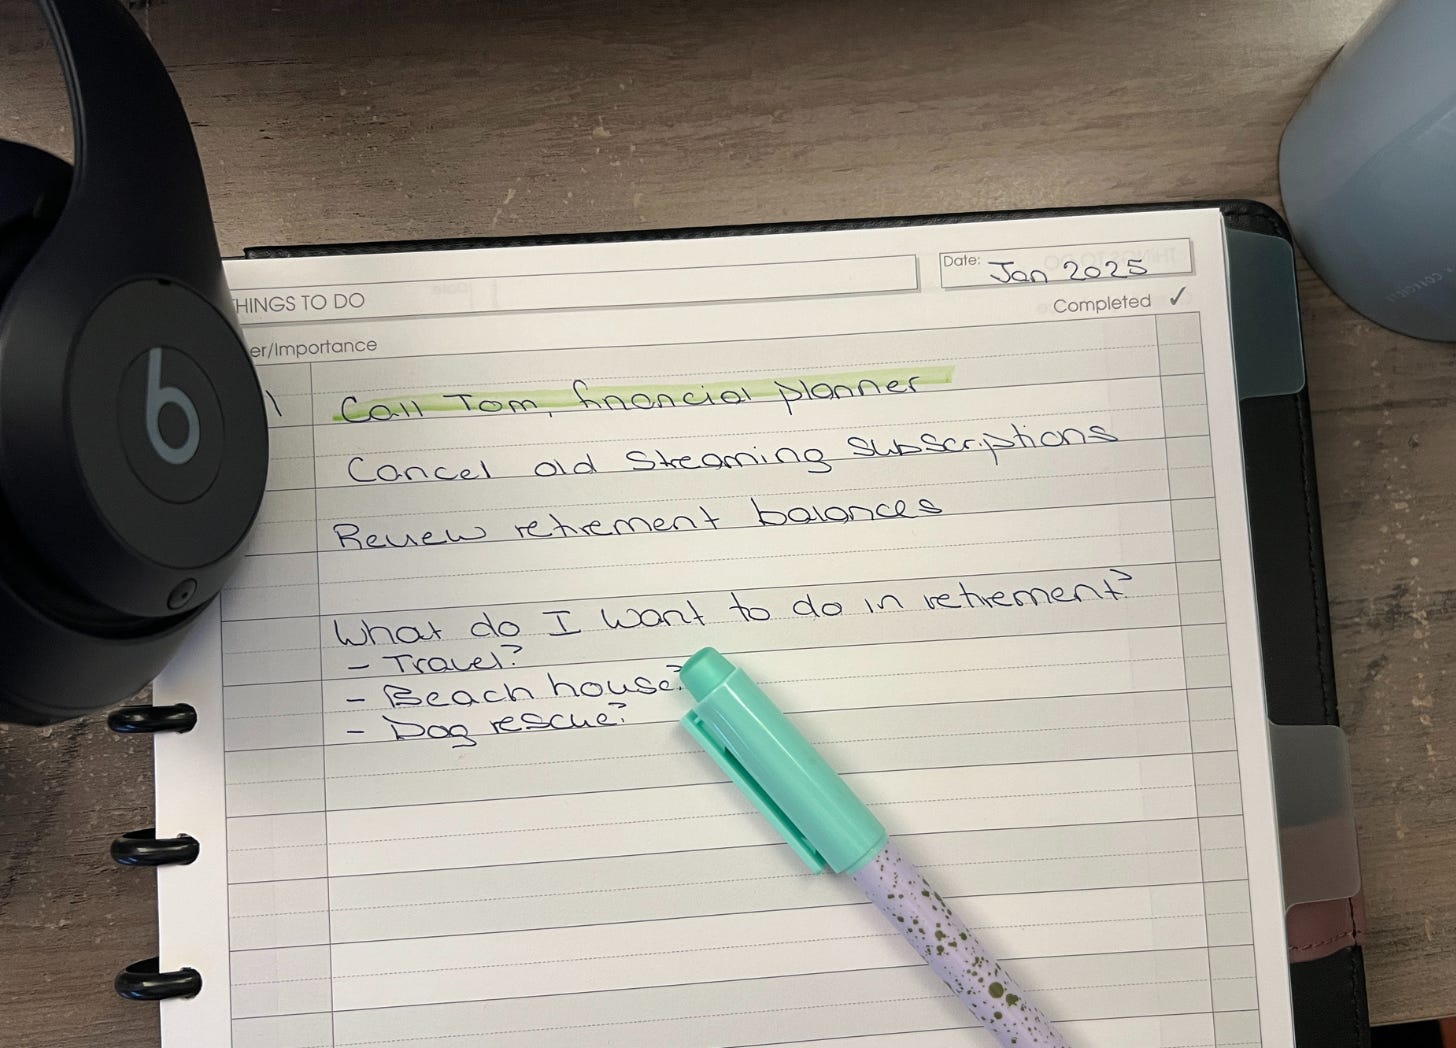 HINGS TO DO
Date: Jan 2025
Completed ✓
er/Importance
1 Call Tom, financial planner
Cancel old Streaming Subscriptions
Review retirement balances
What do I want to do in retirement?
- Travel?
- Beach house?
- Dog rescue?
b